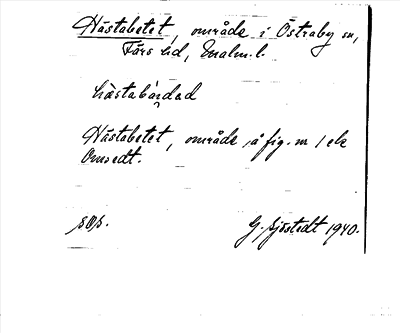 Hästabetet, område i Östraby sn,
Färs hd, Malm. l.
hästabédəd
Hästabetet, område å fig. nr 1 ek
Oms edt.
sås.
G. Sjöstedt 1940.